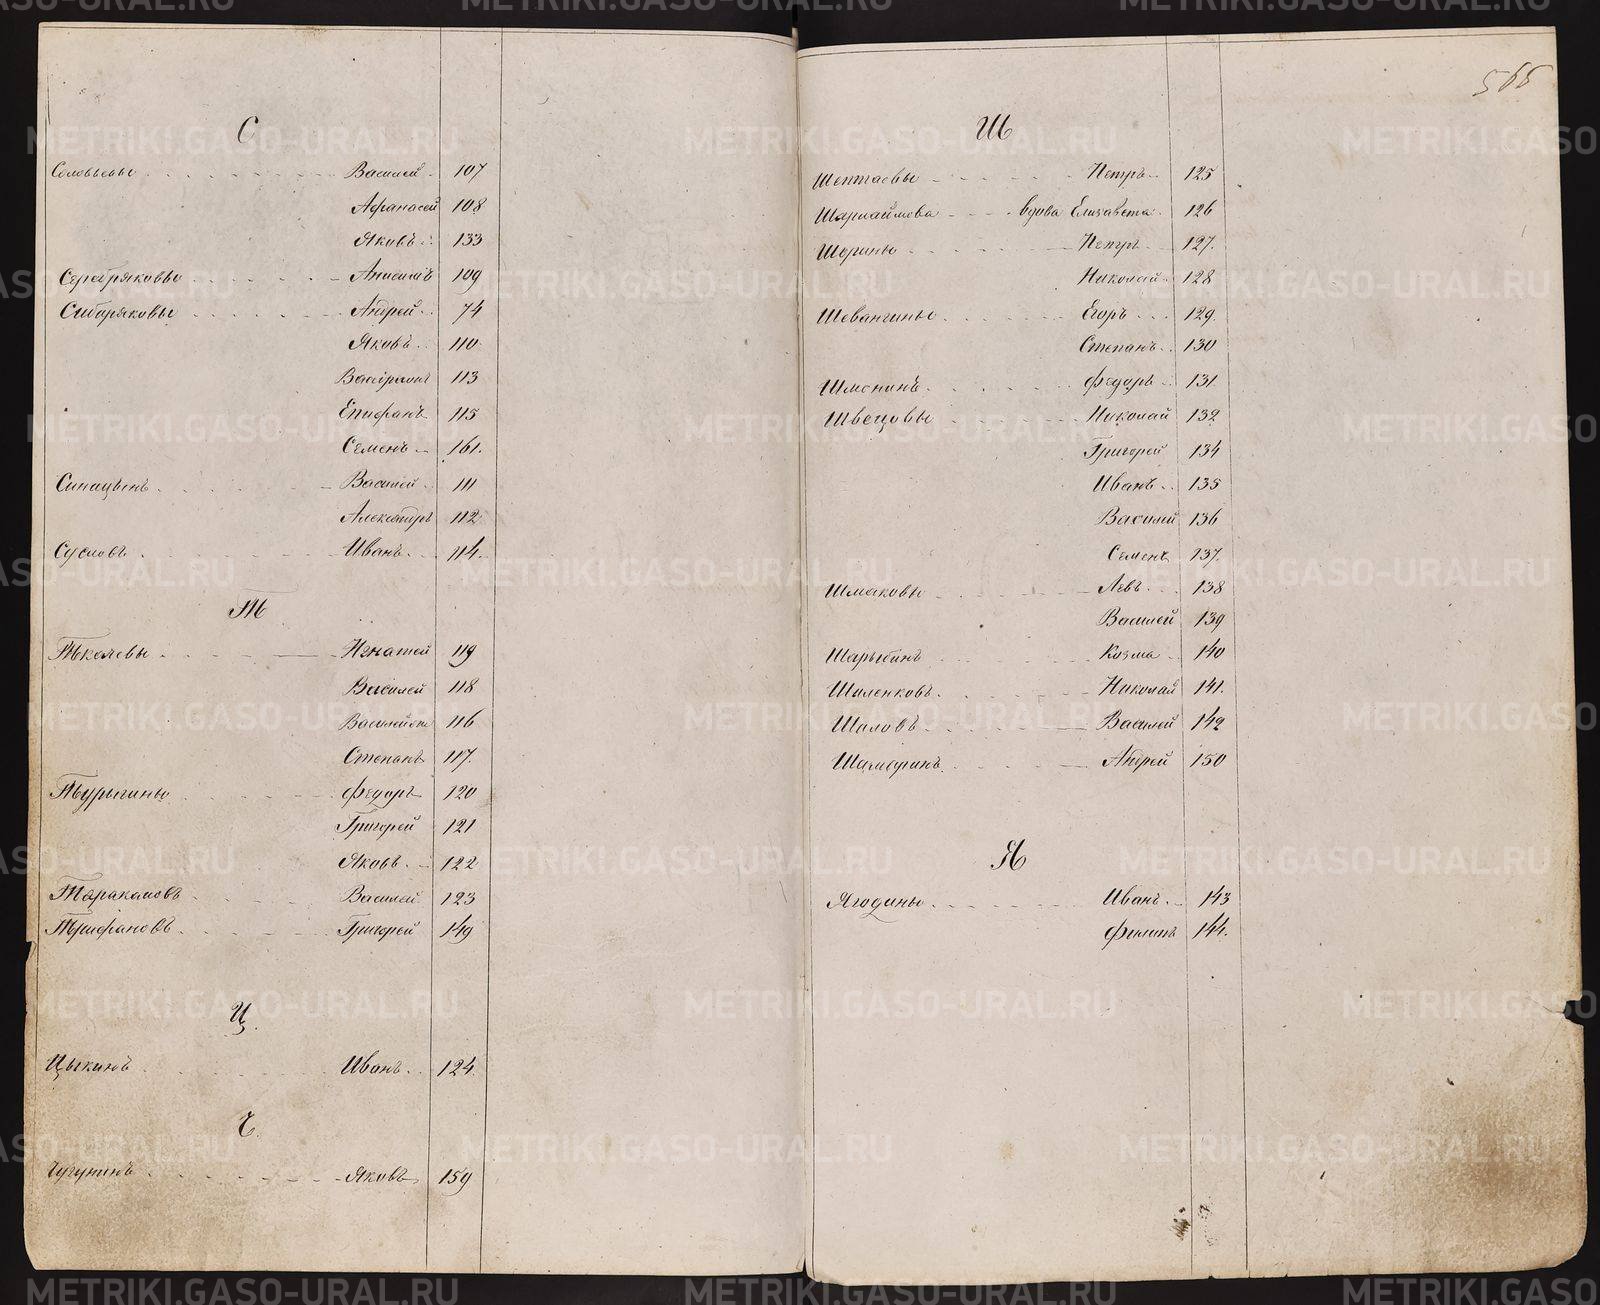 С
Соловьевы Василей 107
Афанасей 108
Яковъ 133
Серебряковы Анисимъ 109
Сибиряковы Андрей 74
Яковъ 110
113
Епифанъ 115
Семенъ 161.
Синицынъ Василей 111
Александръ 112
Сусловъ Иванъ 114.
Т
Ткачевы Игнатей 119
Василей 118
116
Степанъ 117.
Турыгины Федоръ 120
Григорей 121
Яковъ 122
Таракановъ Василей 123
Трифановъ Григорей 149
Ц.
Цыкинъ Иванъ 124.
Ч.
Чугунинъ Яковъ 159
566
Ш
Шептаевы Петръ 125
вдова Елизавета 126
Шорины Петръ 127.
Николай 128
Шевангины Егоръ 129.
Степанъ 130
Федоръ 131.
Швецовы Николай 132
Григорей 134
Иванъ 135
Василей 136
Семенъ 137.
Шмаковы Левъ 138
Василей 139
Шарыбинъ Козма 140
Шиленковъ Николай 141.
Шиловъ Василей 142
Андрей 150
Я
Ягодины Иванъ 143
Филипъ 144.
METRIKI.GASO-URAL.RU